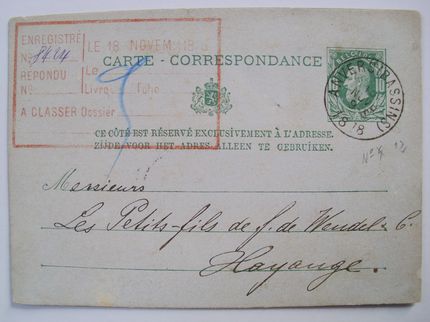 ENREGISTRÉ
Nº 8424
RÉPONDU
Nº
A CLASSER Dossier
LE 18 NOVEM. 18
Le
Livre Folio
CARTE - CORRESPONDANCE
ANVERS (BASSINS)
CE CÔTÉ EST RÉSERVÉ EXCLUSIVEMENT À L'ADRESSE.
ZIJDE VOOR HET ADRES ALLEEN TE GEBRUIKEN.
Messieurs
Les Petits-fils de f. de Wendel & C.
Hayange.